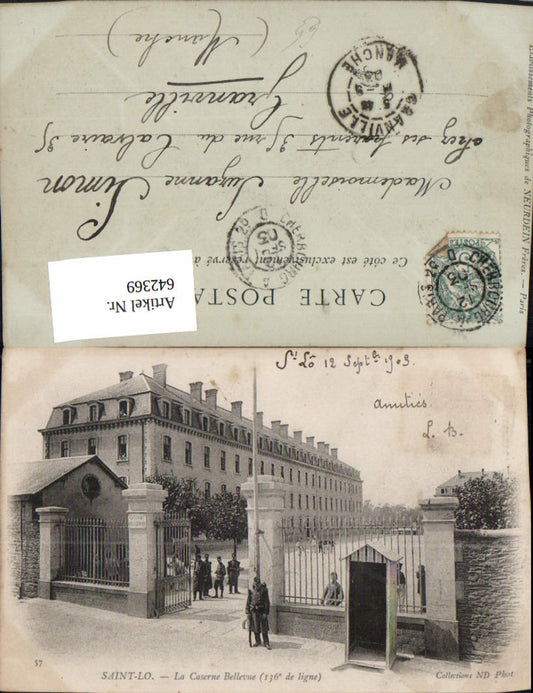 Etablissements Photographiques de NEURDEIN Frères. — Paris
CARTE POSTA
Ce côté est exclusivement réservé à
Mademoiselle Suzanne Simon
chez ses parents 35 rue du Calvaire 35
Granville
(Manche)
GRANVILLE
MANCHE
CHERBOURG
PARIS
CHERBOURG
PARIS
Artikel Nr.
642369
St Lô 12 Septbre 1903
Amitiés
L. B.
57
SAINT-LO. — La Caserne Bellevue (136e de ligne)
Collections ND Phot